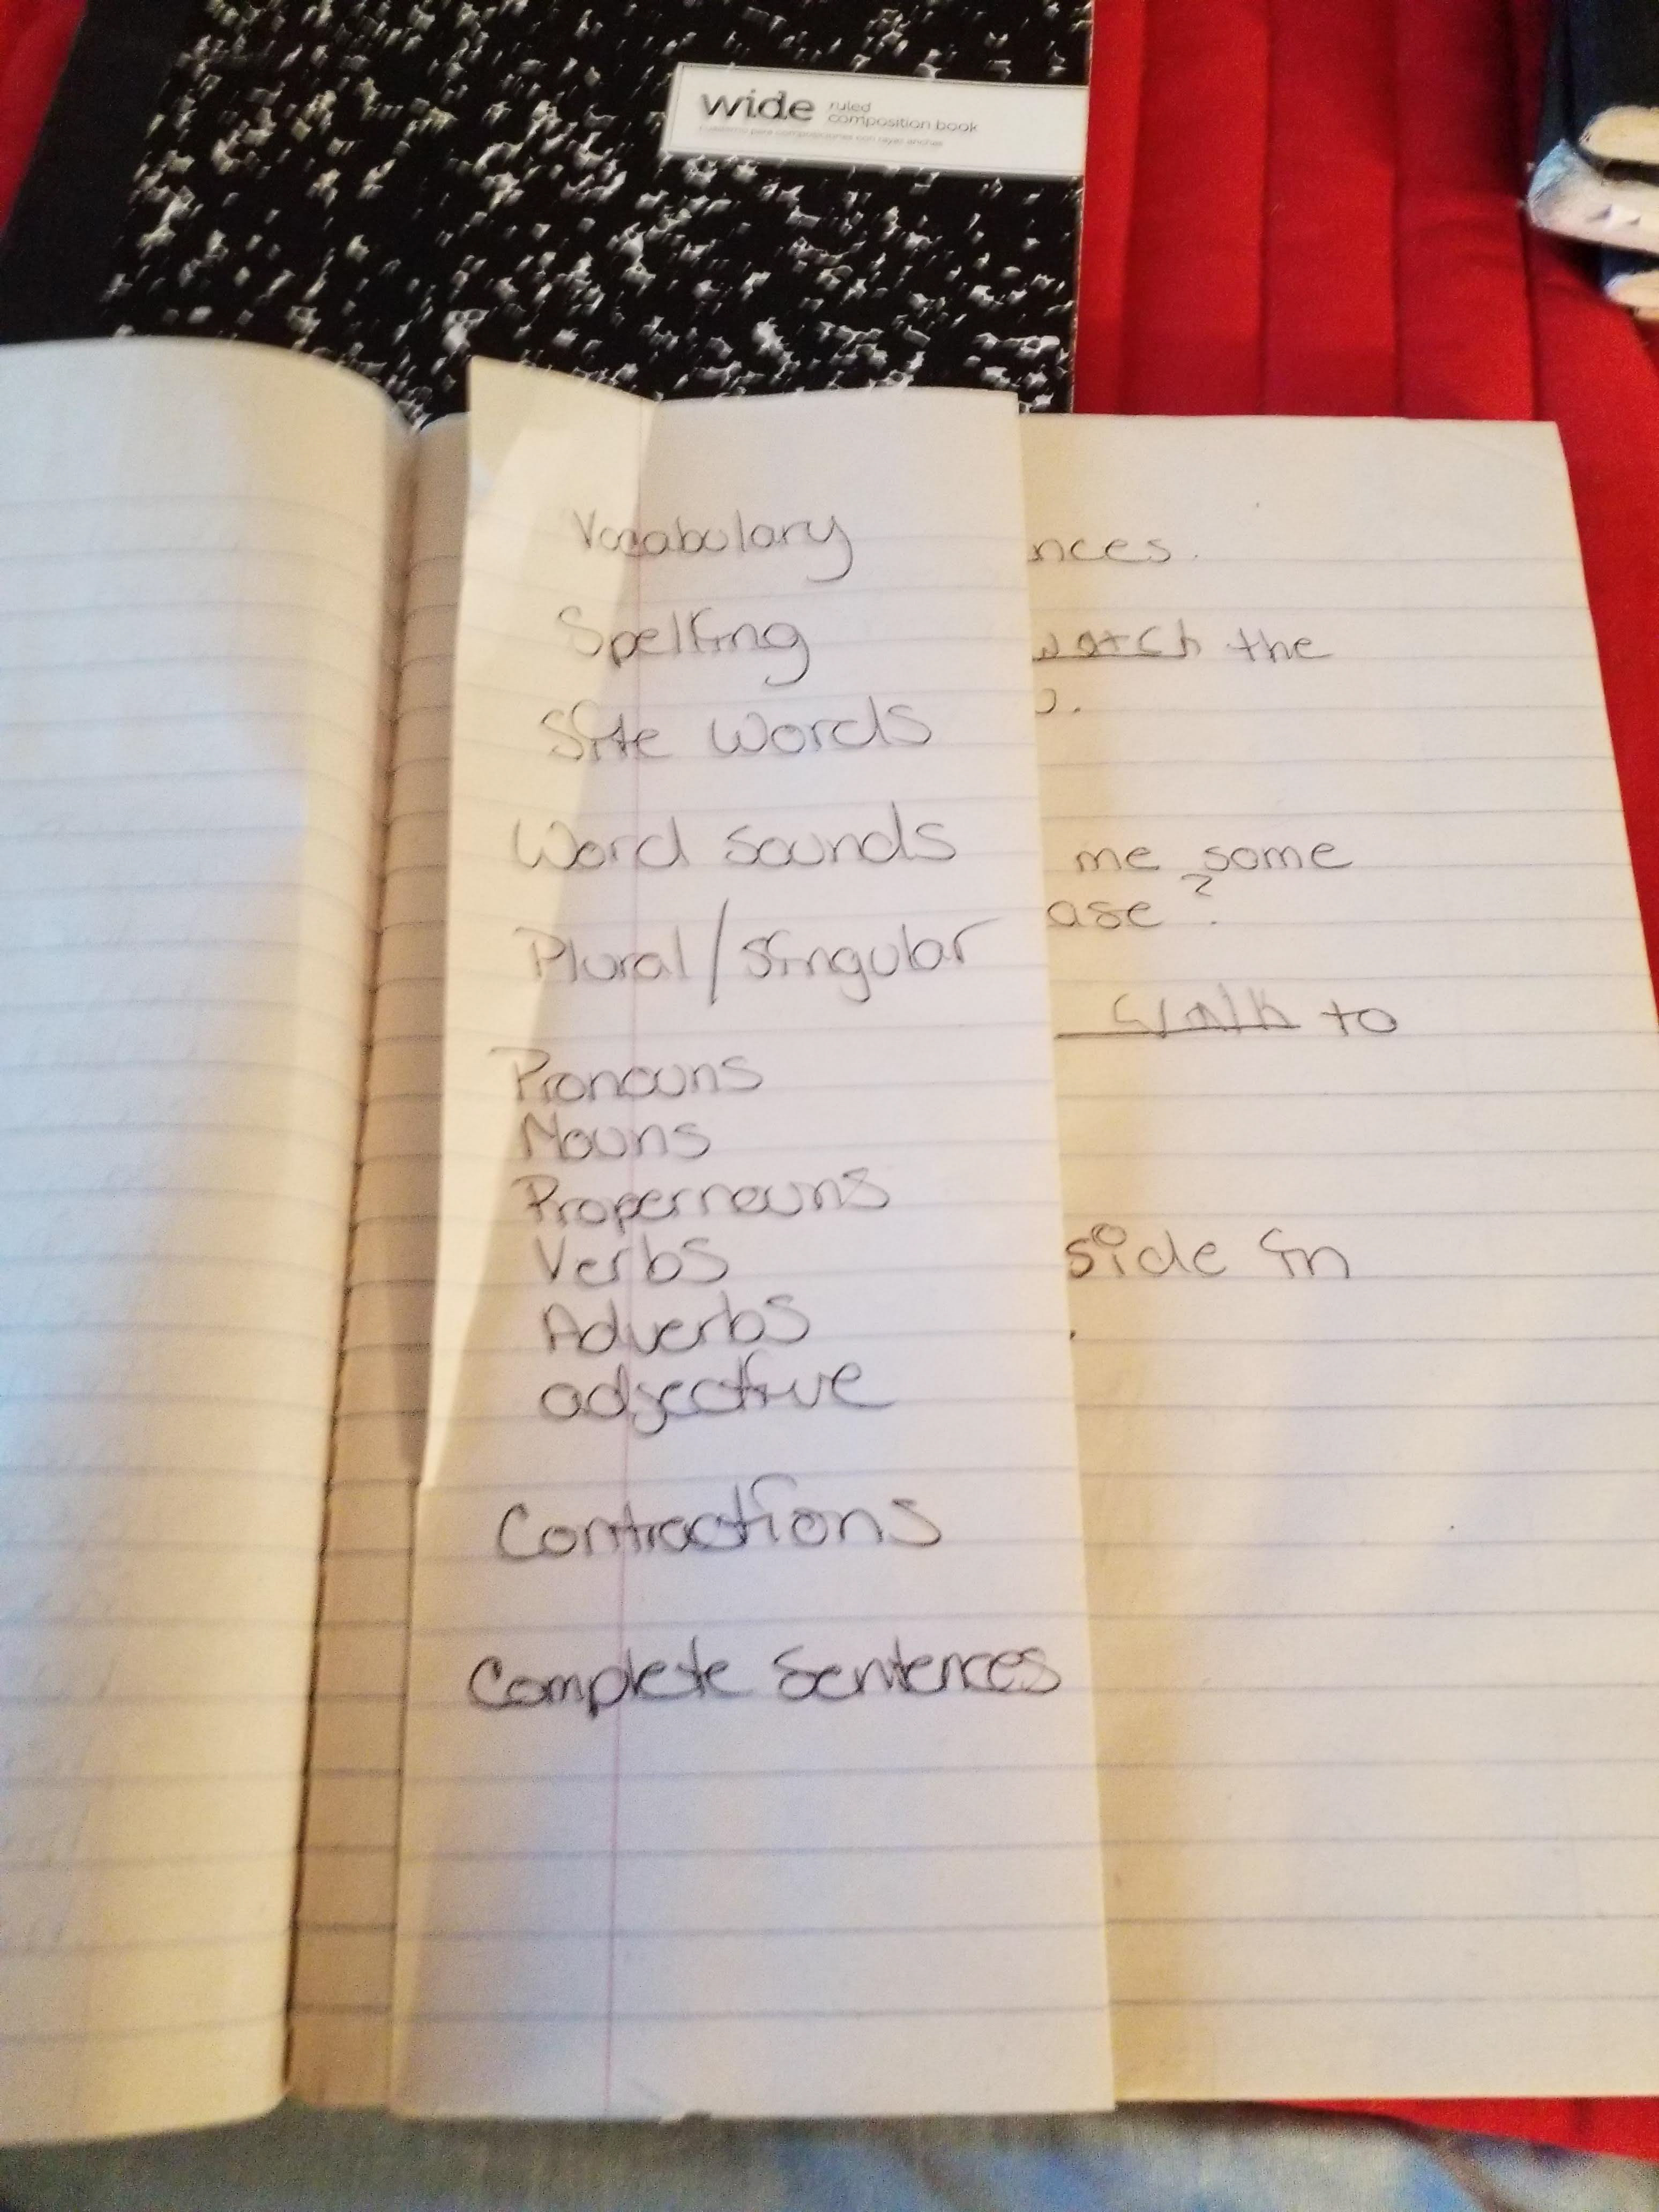 wide ruled
composition book
Vocabulary
Spelling
Site Words
Word sounds
Plural/singular
Pronouns
Nouns
Propernouns
Verbs
Adverbs
adjective
Contractions
Complete Sentences
nces.
watch the
me some
ase?
walk to
side in